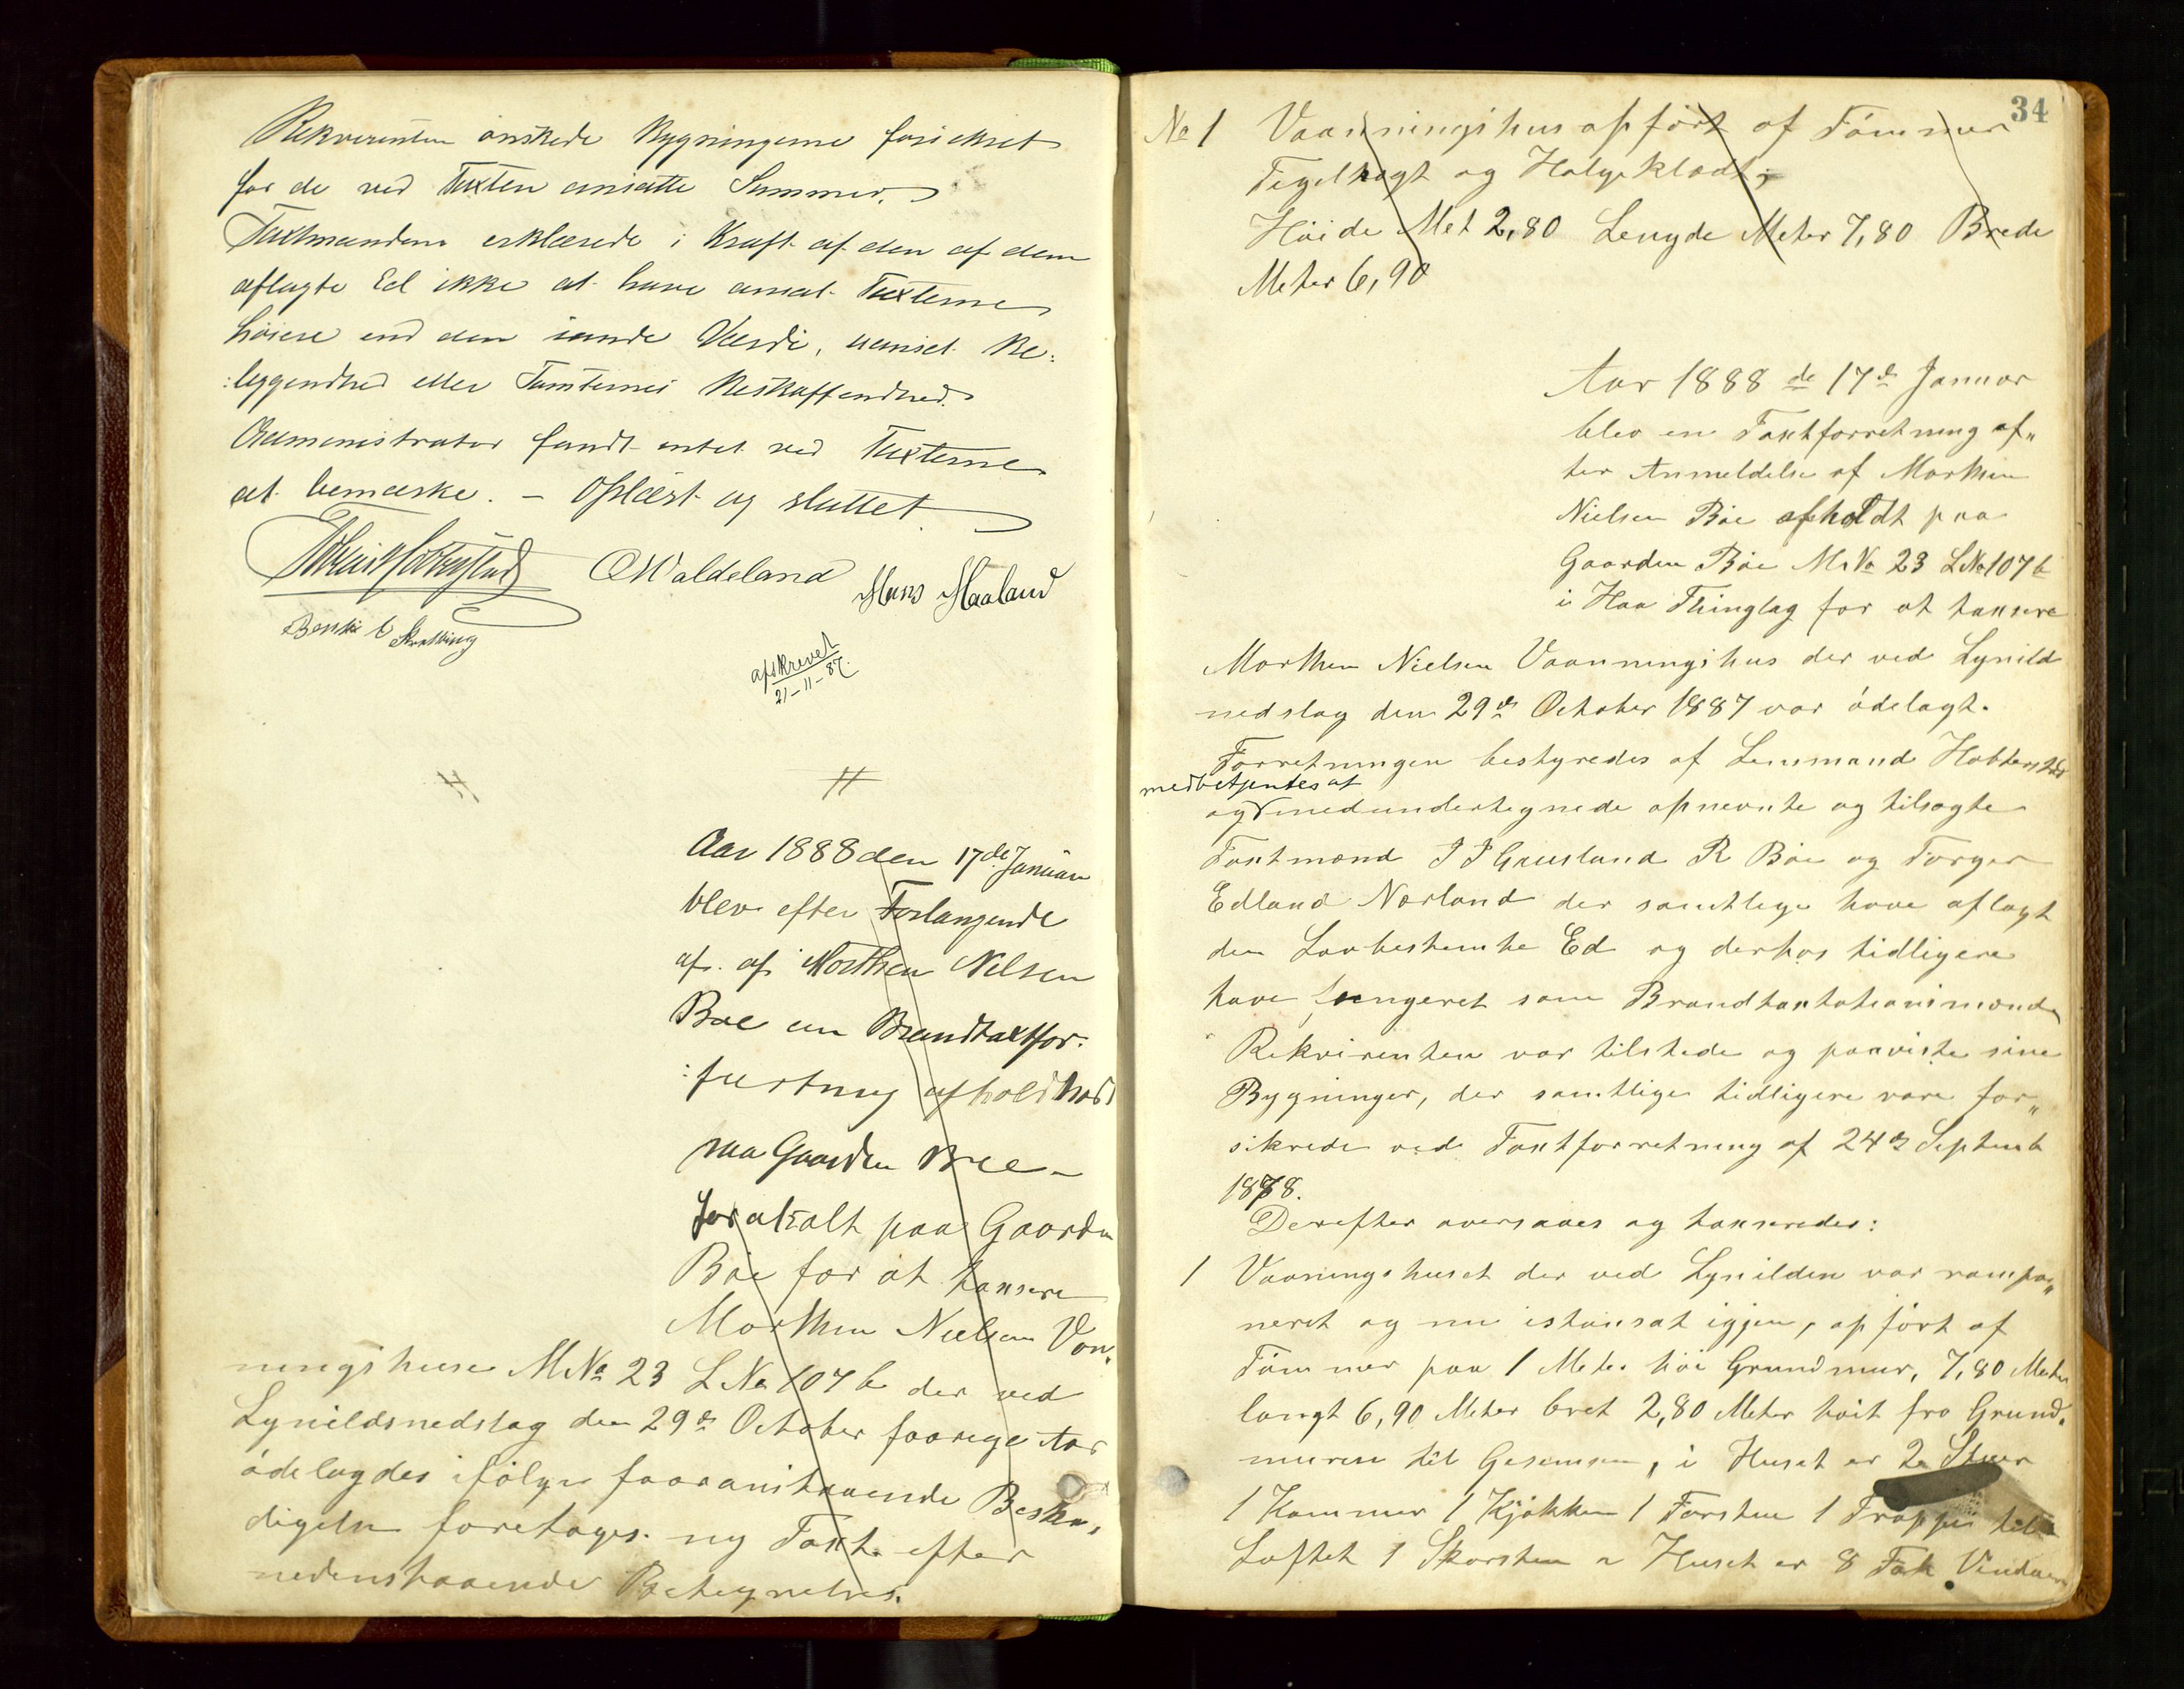 Rekvirenten önskede Bygningerne forsikret
for de ved Taxten ansatte Summer.
Taxtmændene erklærede i Kraft af den af dem
aflagte Ed ikke at have ansat Taxterne
höiere end den sande Værdi, uanset Be-
:leggenhed eller Tomternes Beskaffendhed.
Administrator fandt intet ved Taxterne
at bemærke. – Oplæst og sluttet
OWaldeland
Hans Haaland
afskrevet
21-11-87.
Aar 1888 den 17de Januar
blev efter Forlangende
af af Morthen Nilsen
Boe en Brandtaxtfor-
afhold
paa Gaarden Bœ –
paa Gaarden
Böe for at taxsere
Morthen Nielsen Von,
ningshuse MNo 23 LNo 107 b der ved
Lynildsnedslag den 29de October forrige Aar
ödelagdes ifölge foranstaaende Beskn,
digelse foretages ny Taxt efter
nedenstaaende Betegnelser.
34
No 1 Vaaningshus opfört af Tömmer
Tegelhagt og Halgeklædt;
Höide Met 2,80 Lengde Meter 7,80 Brede
Meter 6,90
Aar 1888 de 17de Januar
blev en Taxtforretning ef„
ter Anmeldelse af Morthen
Nielsen Böe afholdt paa
Gaarden Böe MNo 23 LNo 107 b
i Haa Thinglag for at taxsere
Morthen Nielsen Vaanningshus der ved Lynild
nedslag den 29de October 1887 var ödelagt.
Forretningen bestyredes af Lensmand
medbetjentes af
og medundertegnede opnevnte og tilsagte
Taxtmænd R Böe og Torger
Edland Nærland der samtlege have aflagt
den Lovbestemte Ed og derhos tidligere
have fungeret som Brandtaxtationsmænd
Rekvirenten var tilstede og paaviste sine
Bygninger, der samtlige tidligere vare for„
sikrede ved Taxtforretning af 24de Septemb
1878.
Derefter oversaaes og taxseredes:
1 Vaaningshuset der ved Lynilden var rampo„
neret og nu istansat iggjen, opfört af
Tömmer paa 1 Meter höi Grundmur, 7,80 Meter
langt 6,90 Meter bret 2,80 Meter höit fra Grund,
muren til Gesemsen, i Huset er 2 Stuer
1 Kammer 1 Kjökken 1 Forstue 1 Trappe til
Loftet 1 Skorsten Huset er 8 Fak Vinduer